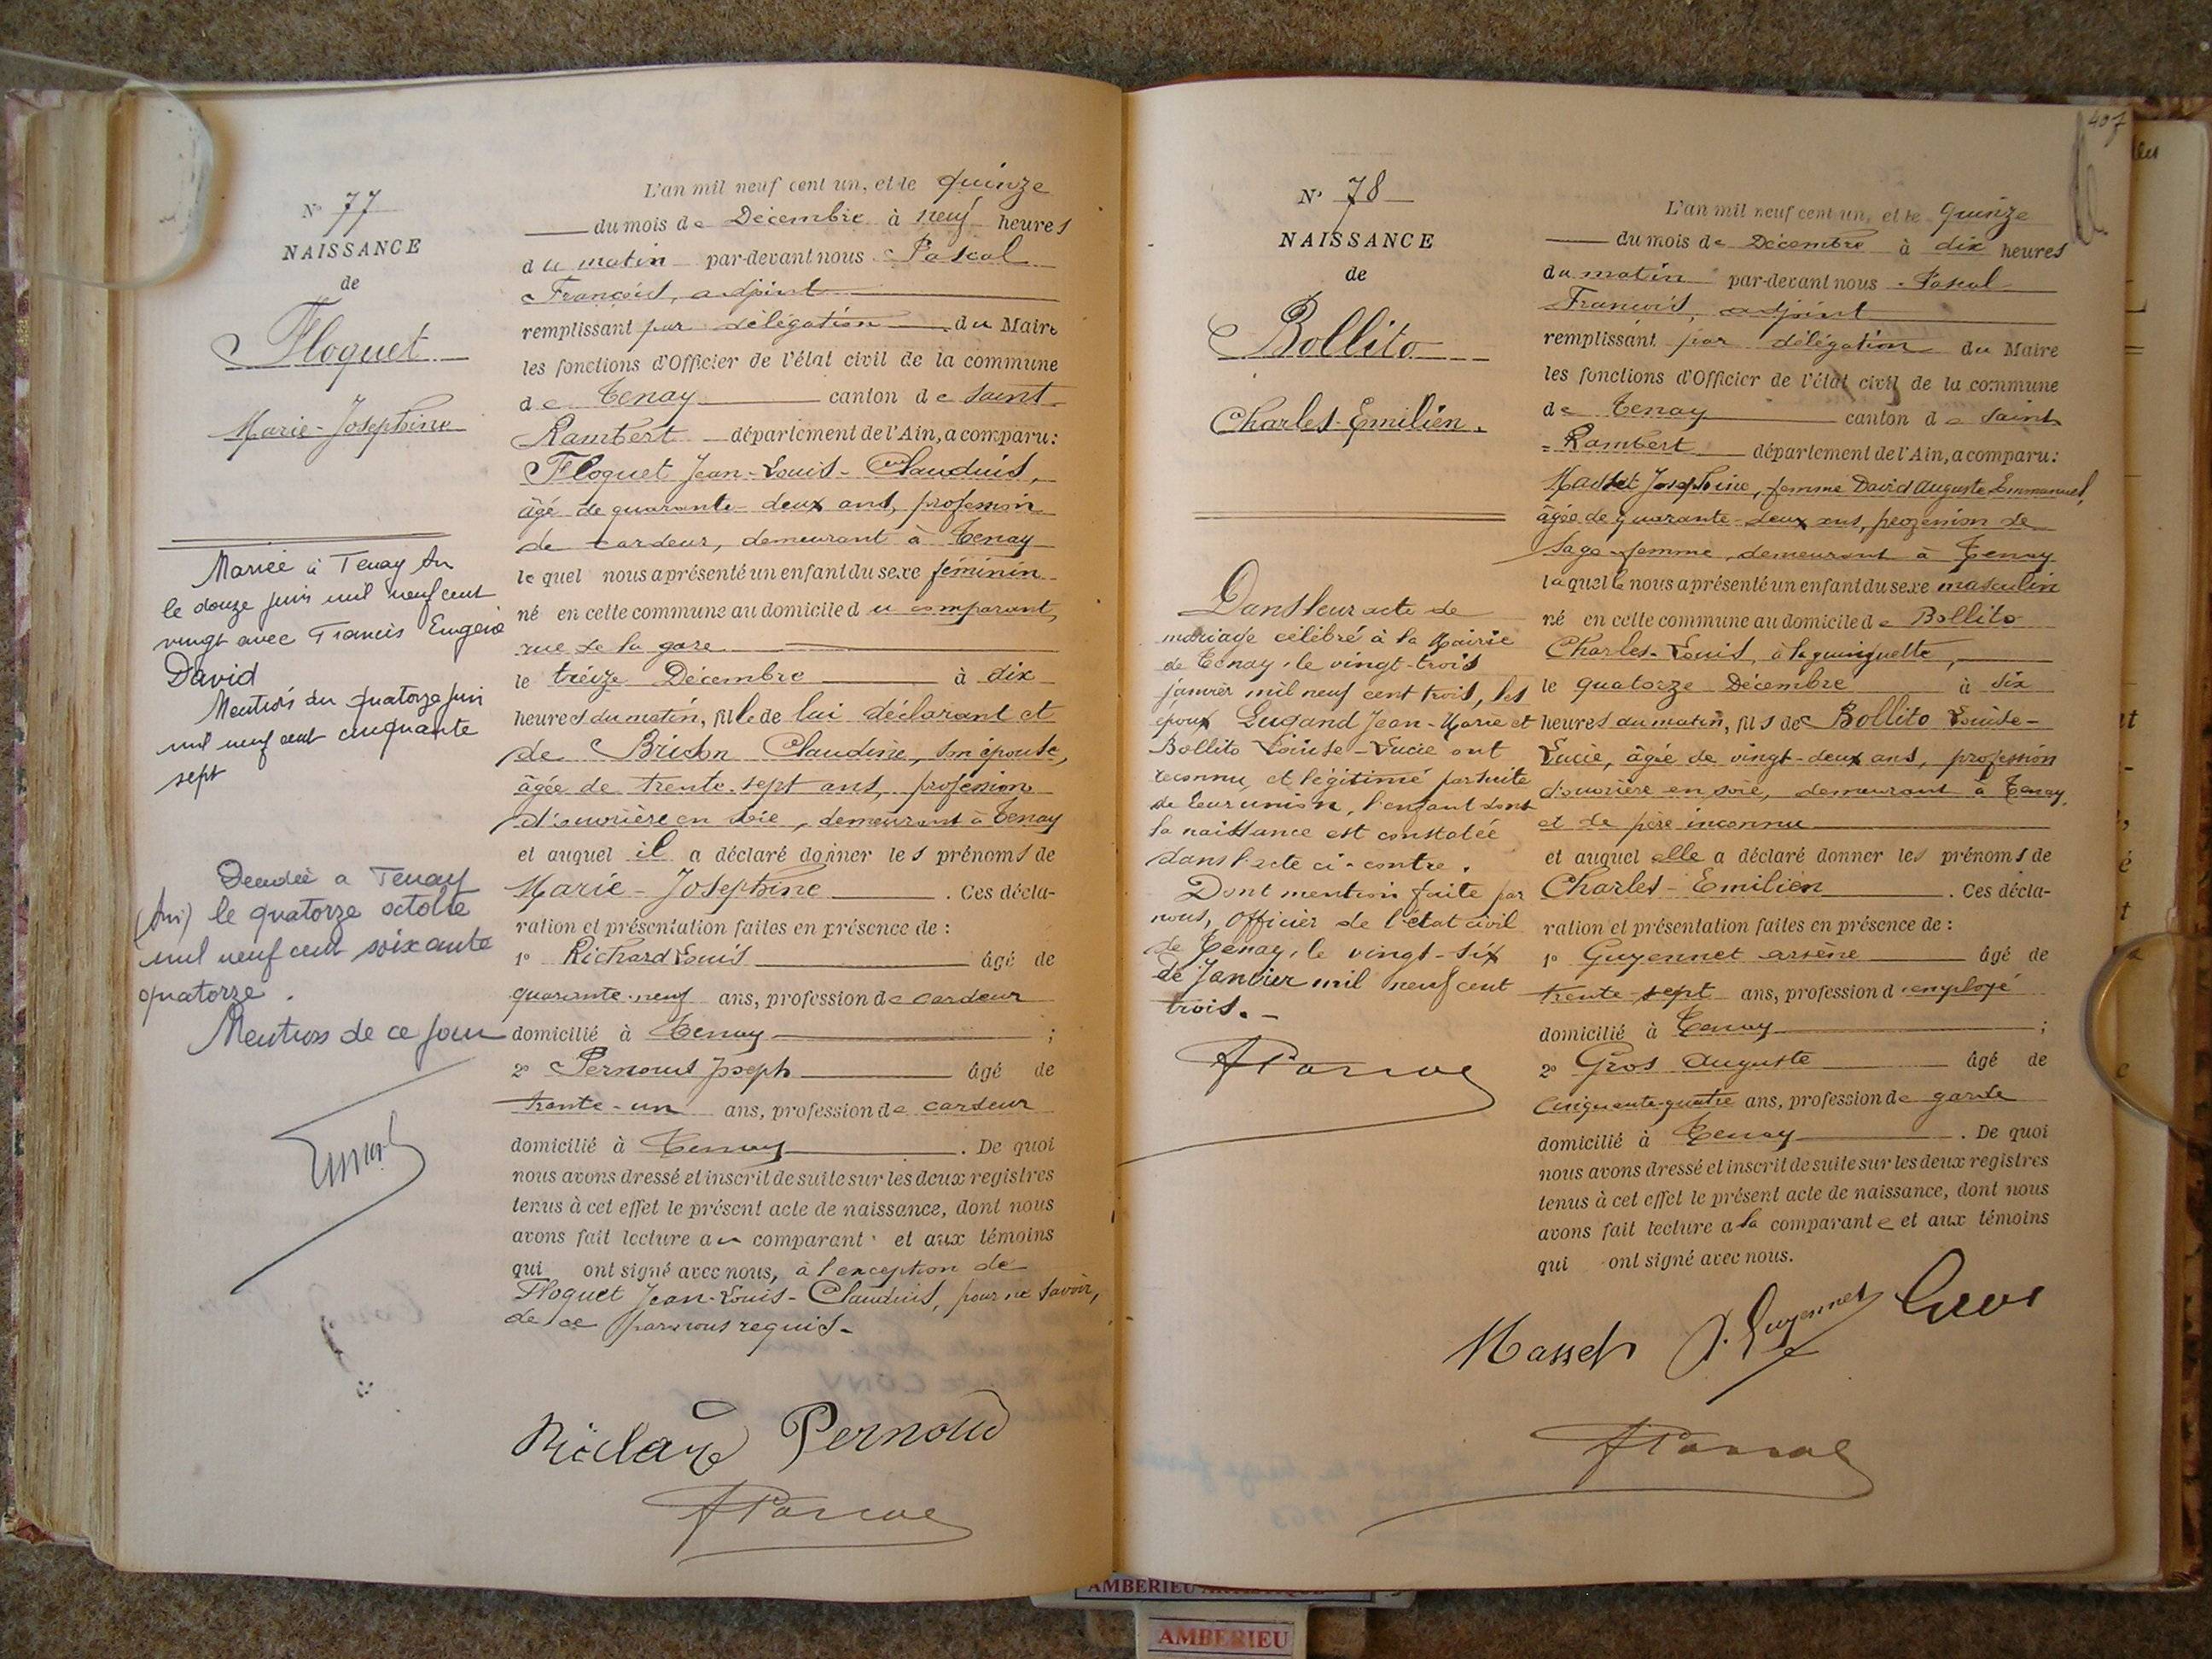 N° 77
NAISSANCE
de
Floquet
Marie-Josephine
Mariée à Tenay Ain
le douze juin mil neuf cent
vingt avec Francis Eugène
David
Mention du quatorze juin
mil neuf cent cinquante
sept
Décédée a Tenay
(Ain) le quatorze octobre
mil neuf cent soixante
quatorze.
Mention de ce jour
L'an mil neuf cent un, et le quinze
du mois de Décembre à neuf heures
du matin par-devant nous Pascal
François, adjoint
remplissant par délégation du Maire
les fonctions d'Officier de l'état civil de la commune
de Tenay canton de Saint
Rambert département de l'Ain, a comparu:
Floquet Jean-Louis-Claudius,
âgé de quarante-deux ans, profession
de cardeur, demeurant à Tenay
lequel nous a présenté un enfant du sexe féminin
né en cette commune au domicile du comparant,
rue de la gare
le treize Décembre à dix
heures du matin, fille de lui déclarant et
de Bridon Claudine, son épouse,
âgée de trente-sept ans, profession
d'ouvrière en soie, demeurant à Tenay
et auquel il a déclaré donner les prénoms de
Marie-Josephine. Ces décla-
ration et présentation faites en présence de :
1° Richard Louis âgé de
quarante-neuf ans, profession de cardeur
domicilié à Tenay ;
2° Pernoud Joseph âgé de
trente-un ans, profession de cardeur
domicilié à Tenay. De quoi
nous avons dressé et inscrit de suite sur les deux registres
tenus à cet effet le présent acte de naissance, dont nous
avons fait lecture au comparant et aux témoins
qui ont signé avec nous, à l'exception de
Floquet Jean-Louis-Claudius, pour ne savoir,
de ce par nous requis.
Richard Pernoud
FPascal
407
N° 78
NAISSANCE
de
Bollito
Charles-Emilien.
Dans leur acte de
mariage célébré à la Mairie
de Tenay, le vingt-trois
janvier mil neuf cent trois, les
époux Lugand Jean-Marie et
Bollito Louise-Lucie ont
reconnu et légitimé par suite
de leur union, l'enfant dont
la naissance est constatée
dans l'acte ci-contre.
Dont mention faite par
nous, Officier de l'état civil
de Tenay, le vingt-six
de Janvier mil neuf cent
trois.-
FPascal
L'an mil neuf cent un, et le quinze
du mois de Décembre à dix heures
du matin par-devant nous Pascal
François, adjoint
remplissant par délégation du Maire
les fonctions d'Officier de l'état civil de la commune
de Tenay canton de Saint
-Rambert département de l'Ain, a comparu:
Masset Josephine, femme David Auguste Emmanuel,
âgée de quarante-deux ans, profession de
Sage-femme, demeurant à Tenay
laquelle nous a présenté un enfant du sexe masculin
né en cette commune au domicile de Bollito
Charles-Louis, à la guinguette,
le quatorze Décembre à six
heures du matin, fils de Bollito Louise-
Lucie, âgée de vingt-deux ans, profession
d'ouvrière en soie, demeurant à Tenay,
et de père inconnu
et auquel elle a déclaré donner les prénoms de
Charles-Emilien. Ces décla-
ration et présentation faites en présence de :
1° Guyennet Arsène âgé de
trente-sept ans, profession d'employé
domicilié à Tenay ;
2° Gros Auguste âgé de
cinquante-quatre ans, profession de garde
domicilié à Tenay. De quoi
nous avons dressé et inscrit de suite sur les deux registres
tenus à cet effet le présent acte de naissance, dont nous
avons fait lecture a la comparante et aux témoins
qui ont signé avec nous.
Masset A. Guyennet Gros
FPascal
AMBERIEU
AMBERIEU